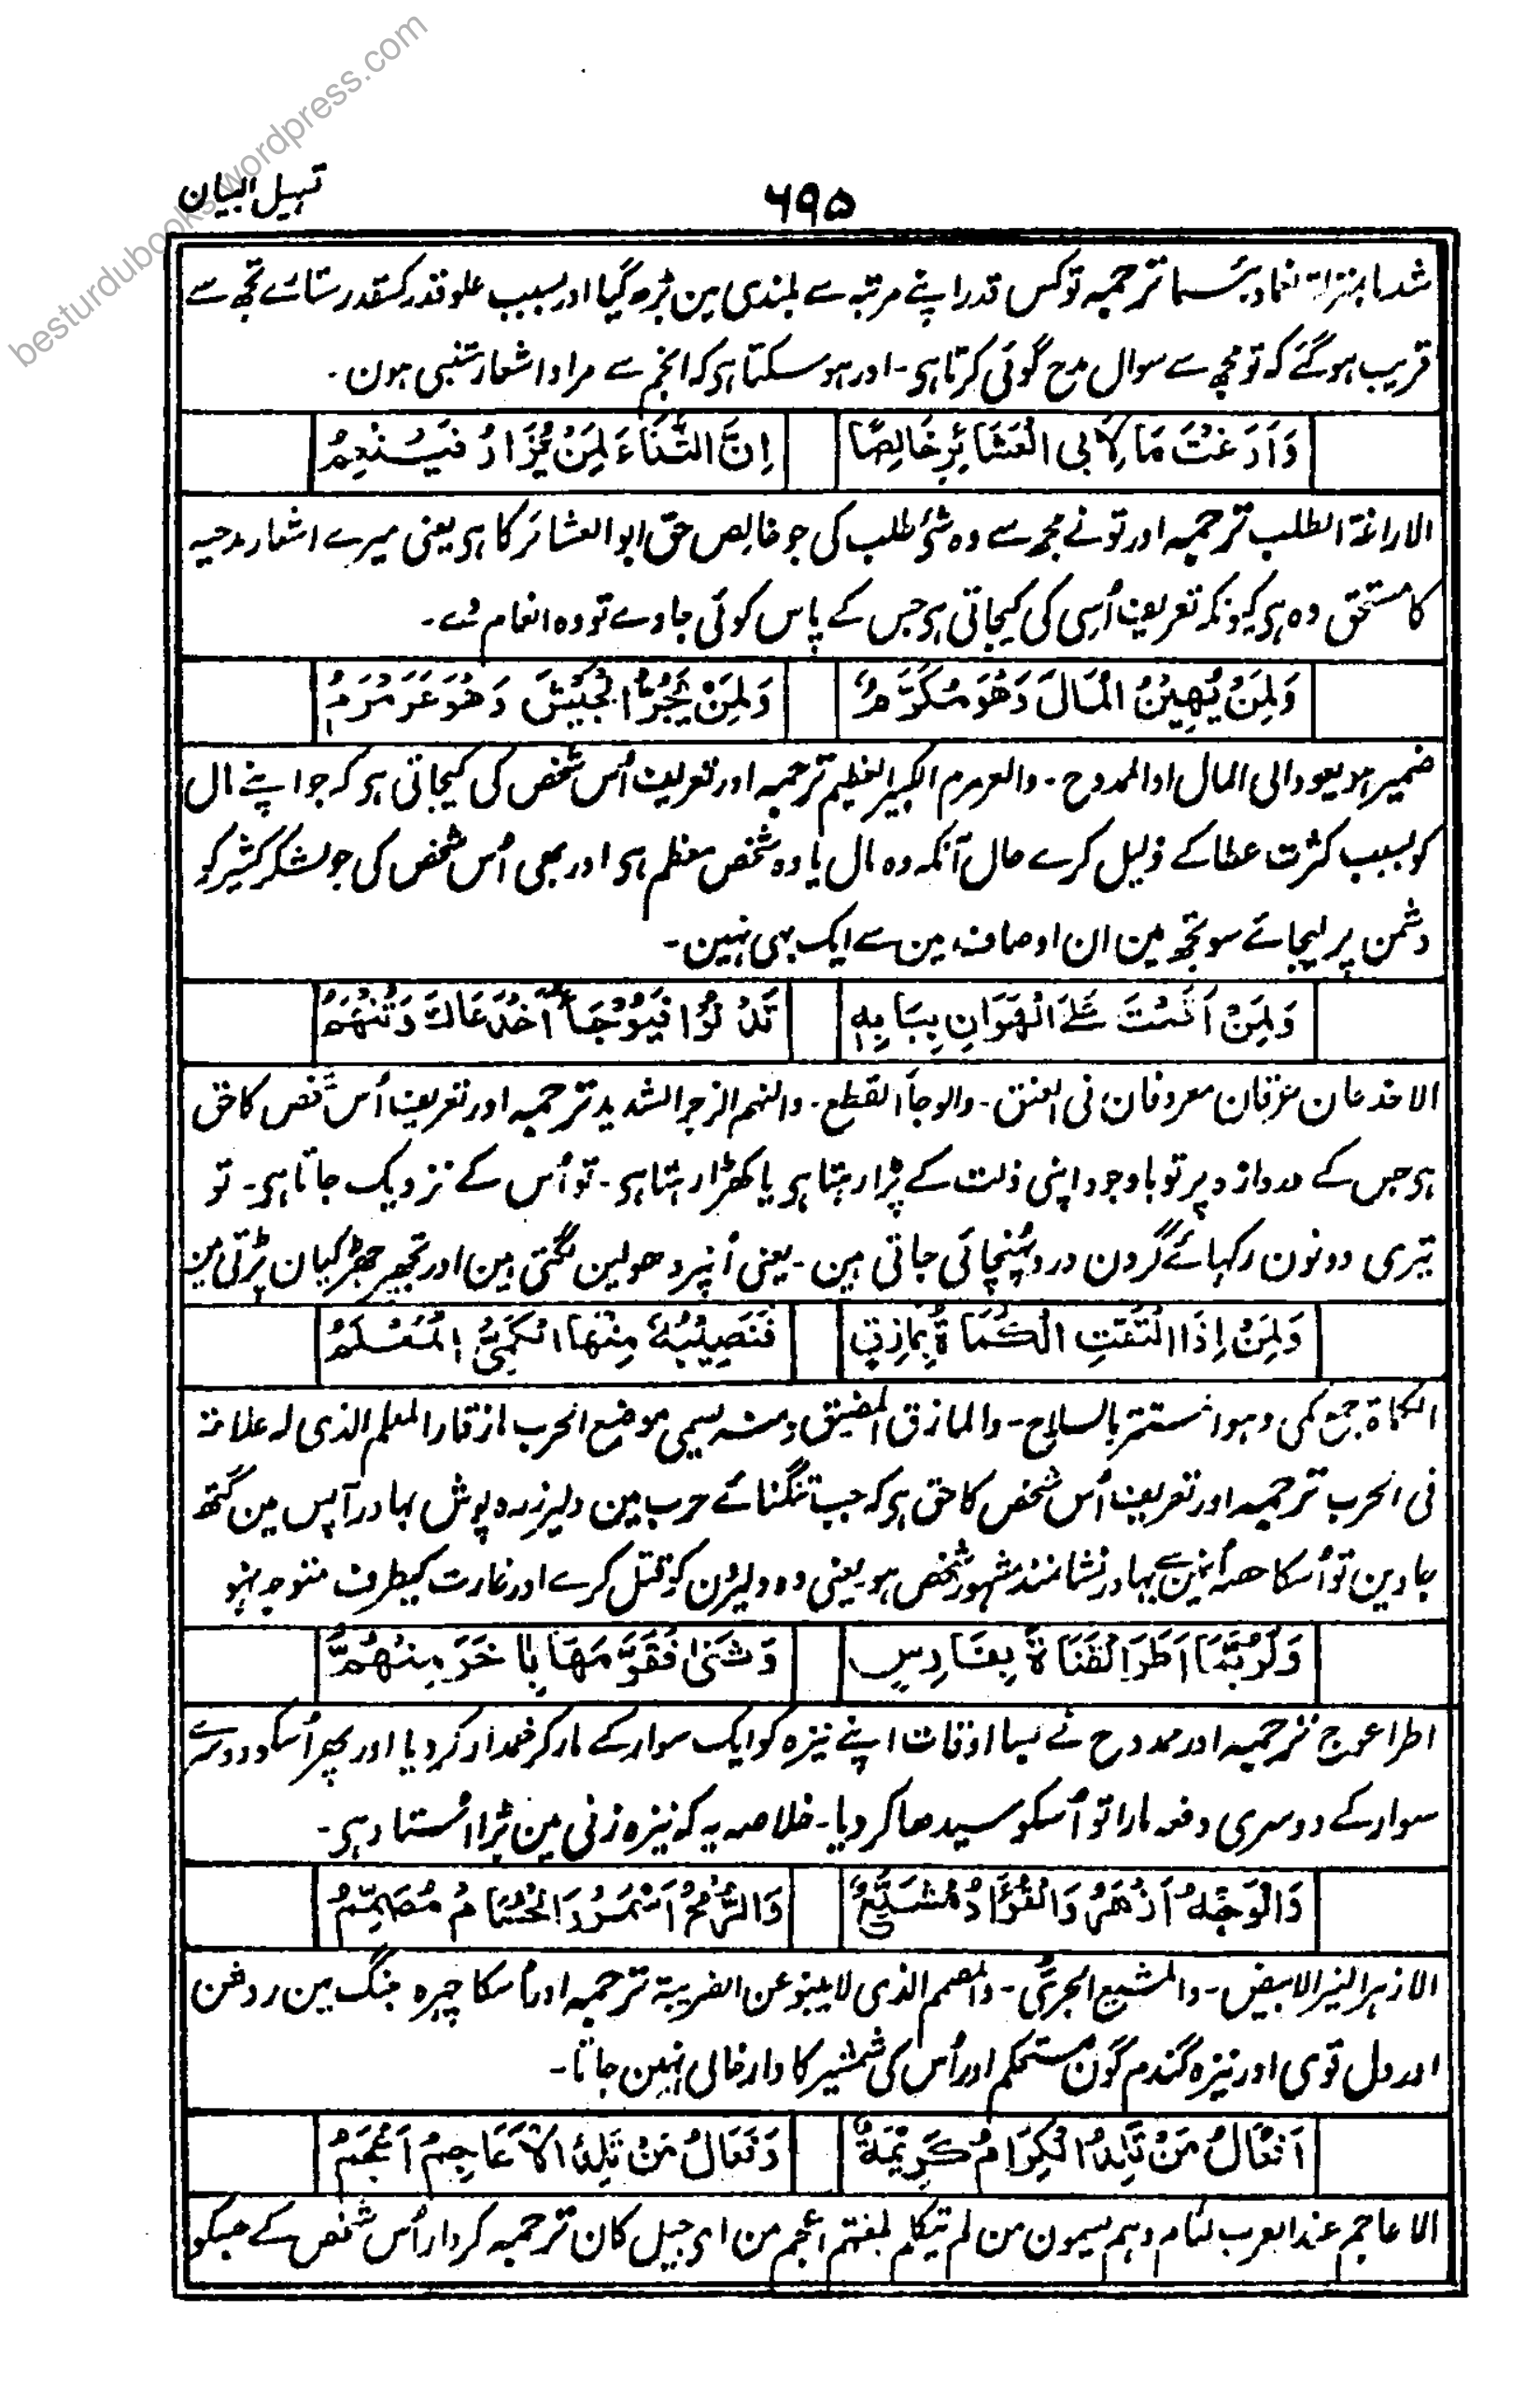 besturdubooks.wordpress.com
تسہیل البیان
۶۹۵
ترجمہ تو کس قدر اپنے مرتبہ سے بلندی مین بڑھ گیا اور بسبب علو قدر کسقدر ستارے تجھ سے
قریب ہو گئے کہ تو مجھ سے سوال مدح گوئی کرتا ہی ۔ اور ہو سکتا ہی کہ انجم سے مراد اشعار متنبی ہون ۔
وَاَرَغْتَ مَا لِاَبِى الْعَشَائِرِ خَالِصًا اِنَّ الثَّنَاءَ لِمَنْ يُّزَادُ فَيُنْعِمُ
الاراغۃ الطلب ترجمہ اور تو نے مجھ سے وہ شئ طلب کی جو خالص حق ابو العشائر کا ہی یعنی میرے اشعار مدحیہ
کا مستحق وہ ہی کیونکہ تعریف اُسی کی کیجاتی ہی جس کے پاس کوئی جاوے تو وہ انعام دے ۔
وَلِمَنْ يُهِيْنُ الْمَالَ وَهُوَ مُكَرَّمٌ وَلِمَنْ يَجُرُّ الْجَيْشَ وَهُوَ عَرَمْرَمُ
ضمیر ہو یعود الی المال او الممدوح ۔ والعرمرم الکبیر العظیم ترجمہ اور تعریف اُس شخص کی کیجاتی ہی کہ جو اپنے مال
کو بسبب کثرت عطا کے ذلیل کرے حال آنکہ وہ مال یا وہ شخص معظم ہی اور بھی اُس شخص کی جو لشکر کثیر کو
دشمن پر لیجائے سو تجھ مین ان اوصاف مین سے ایک بہی نہین ۔
وَلِمَنْ اَقَمْتَ عَلَى الْهَوَانِ بِبَابِهٖ تَدْنُوْا فَيُوْجَأُ اَخْدَعَاكَ وَتُنْهَمُ
الاخدعان عرقان معروفان فی العنق ۔ والوجأ القطع ۔ والنہم الزجر الشدید ترجمہ اور تعریف اُس شخص کا حق
ہی جس کے دروازہ پر تو باوجود اپنی ذلت کے پڑا رہتا ہی یا کھڑا رہتا ہی ۔ تو اُس کے نزدیک جاتا ہی ۔ تو
تیری دونون رگہائے گردن درد پہنچائی جاتی ہین ۔ یعنی اُنپر دھولین لگتی ہین اور تجھپر جھڑکیان پڑتی ہین
وَلِمَنْ اِذَا الْتَقَتِ الْكُمَاةُ بِمَازِقٍ فَنَصِيْبُهٗ مِنْهَا الْكَمِيُّ الْمُعْلَمُ
الکماۃ جمع کمی وہوا لمستتر بالسلاح ۔ والمازق المضیق ومنہ یسمی موضع الحرب مازقا والمعلم الذی لہ علامۃ
فی الحرب ترجمہ اور تعریف اُس شخص کا حق ہی کہ جب تنگنائے حرب مین دلیر زرہ پوش بہادر آپس مین گتھ
جاوین تو اُسکا حصہ اُنمین سے بہادر نشانمند مشہور شخص ہو یعنی وہ دلیرون کو قتل کرے اور غارت کیطرف متوجہ نہو
وَلَرُبَّمَا اَطَرَ الْقَنَاةَ بِفَارِسٍ وَثَنٰى فَقَوَّمَهَا بِاٰخَرَ مِنْهُمُ
اطر اعوج ترجمہ اور ممدوح نے بسا اوقات اپنے نیزہ کو ایک سوار کے مار کر خمدار کر دیا اور پھر اُسکو دوسرے
سوار کے دوسری دفعہ مارا تو اُسکو سیدھا کر دیا ۔ خلاصہ یہ کہ نیزہ زنی مین بڑا اُستاد ہی ۔
وَالْوَجْهُ اَزْهَرُ وَالْفُؤَادُ مُشَيَّعٌ وَالرُّمْحُ اَسْمَرُ وَالْحُسَامُ مُصَمِّمُ
الازہر النیر الابیض ۔ والمشیع الجرئی ۔ والمصمم الذی لاینبو عن الضریبۃ ترجمہ اور اُسکا چہرہ جنگ مین روشن
اور دل قوی اور نیزہ گندم گون مستحکم اور اُس کی شمشیر کا وار خالی نہین جاتا ۔
اَفْعَالُ مَنْ تَلِدُ الْكِرَامُ كَرِيْمَةٌ وَفَعَالُ مَنْ تَلِدُ الْاَعَاجِمُ اَعْجَمُ
الاعاجم عند العرب لئام وہم یسمون من لم یتکلم بلغتہم اعجم من ای جیل کان ترجمہ کردار اُس شخص کے جسکو